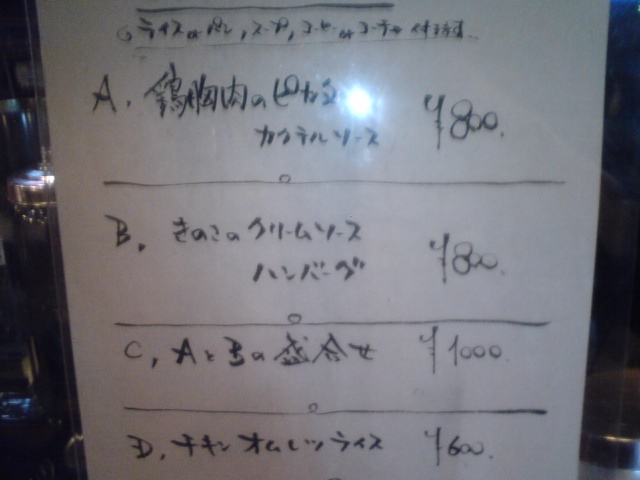 ○ ライス or パン, スープ, コーヒー or コーラ 付きます.
A. 鶏胸肉のピカタ
カクテルソース ¥800.
B. きのこのクリームソース
ハンバーグ ¥800.
C, AとBの盛合せ ¥1000.
D. チキンオムレツライス ¥600.